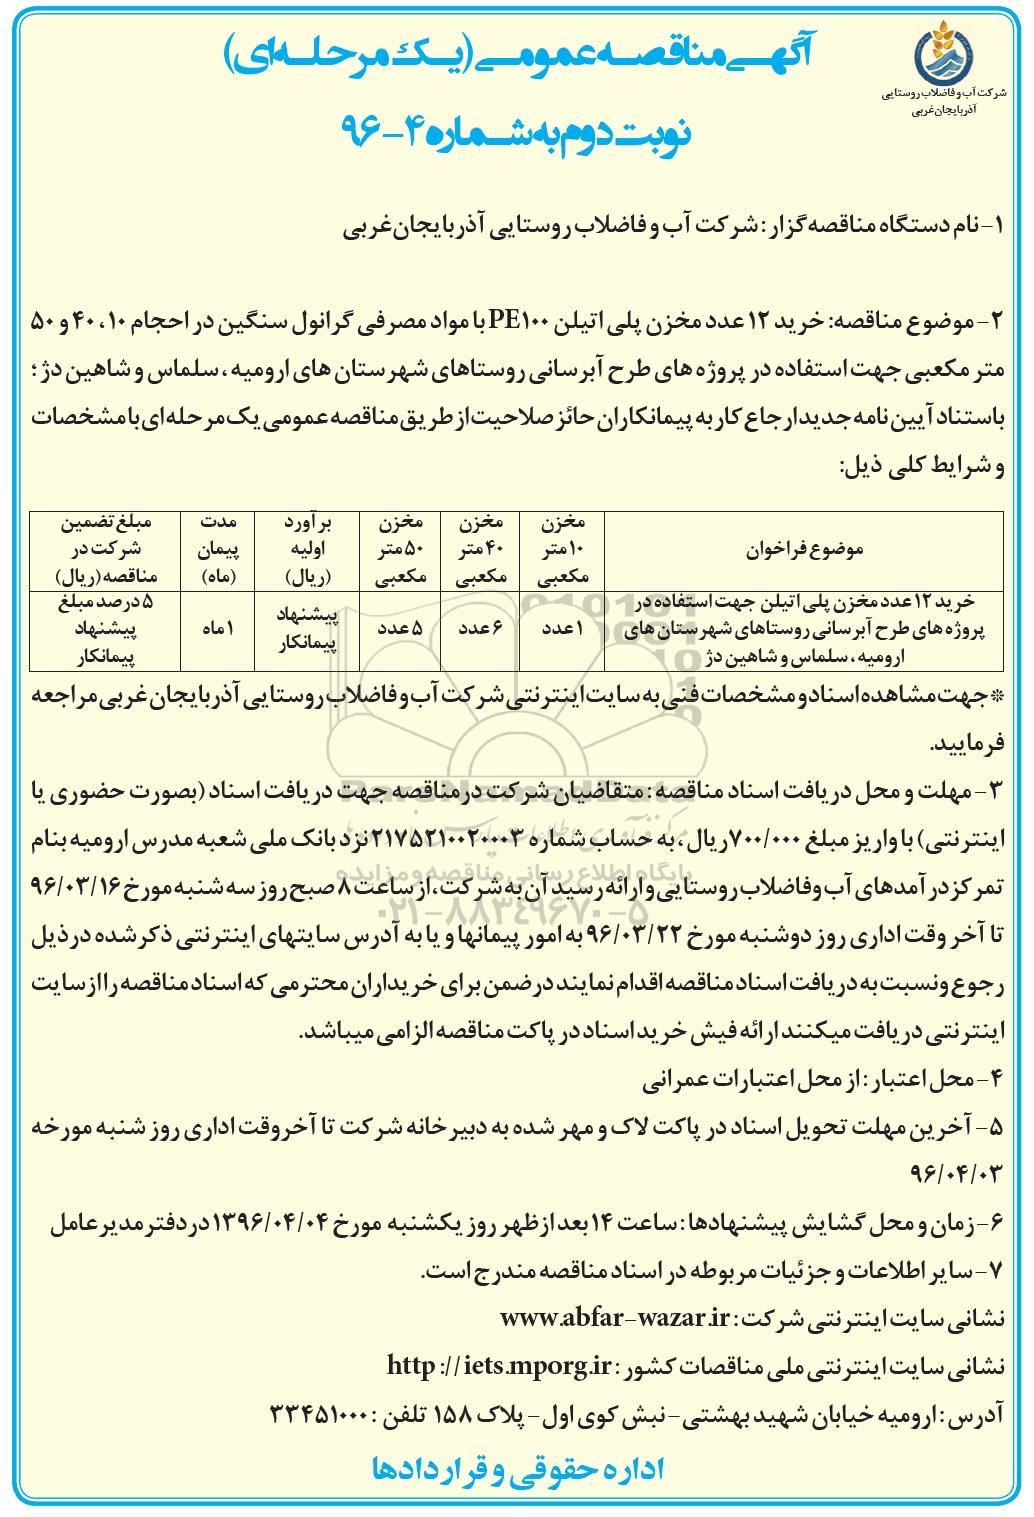 شرکت آب و فاضلاب روستایی
آذربایجان غربی
آگهی مناقصه عمومی (یک مرحله ای)
نوبت دوم به شماره ۴-۹۶
۱- نام دستگاه مناقصه گزار : شرکت آب و فاضلاب روستایی آذربایجان غربی
۲- موضوع مناقصه: خرید ۱۲ عدد مخزن پلی اتیلن PE۱۰۰ با مواد مصرفی گرانول سنگین در احجام ۱۰، ۴۰ و ۵۰
متر مکعبی جهت استفاده در پروژه های طرح آبرسانی روستاهای شهرستان های ارومیه ، سلماس و شاهین دژ ؛
باستناد آیین نامه جدید ارجاع کار به پیمانکاران حائز صلاحیت از طریق مناقصه عمومی یک مرحله ای با مشخصات
و شرایط کلی ذیل:
موضوع فراخوان | مخزن ۱۰ متر مکعبی | مخزن ۴۰ متر مکعبی | مخزن ۵۰ متر مکعبی | برآورد اولیه (ریال) | مدت پیمان (ماه) | مبلغ تضمین شرکت در مناقصه (ریال)
خرید ۱۲ عدد مخزن پلی اتیلن جهت استفاده در پروژه های طرح آبرسانی روستاهای شهرستان های ارومیه ، سلماس و شاهین دژ | ۱ عدد | ۶ عدد | ۵ عدد | پیشنهاد پیمانکار | ۱ ماه | ۵ درصد مبلغ پیشنهاد پیمانکار
*جهت مشاهده اسناد و مشخصات فنی به سایت اینترنتی شرکت آب و فاضلاب روستایی آذربایجان غربی مراجعه
فرمایید.
۳- مهلت و محل دریافت اسناد مناقصه : متقاضیان شرکت در مناقصه جهت دریافت اسناد (بصورت حضوری یا
اینترنتی) با واریز مبلغ ۷۰۰/۰۰۰ ریال ، به حساب شماره ۲۱۷۵۲۱۰۰۲۰۰۰۳ نزد بانک ملی شعبه مدرس ارومیه بنام
تمرکز درآمدهای آب و فاضلاب روستایی و ارائه رسید آن به شرکت، از ساعت ۸ صبح روز سه شنبه مورخ ۹۶/۰۳/۱۶
تا آخر وقت اداری روز دوشنبه مورخ ۹۶/۰۳/۲۲ به امور پیمانها و یا به آدرس سایتهای اینترنتی ذکر شده در ذیل
رجوع و نسبت به دریافت اسناد مناقصه اقدام نمایند در ضمن برای خریداران محترمی که اسناد مناقصه را از سایت
اینترنتی دریافت میکنند ارائه فیش خرید اسناد در پاکت مناقصه الزامی میباشد.
۴- محل اعتبار : از محل اعتبارات عمرانی
۵- آخرین مهلت تحویل اسناد در پاکت لاک و مهر شده به دبیرخانه شرکت تا آخر وقت اداری روز شنبه مورخه
۹۶/۰۴/۰۳
۶- زمان و محل گشایش پیشنهادها : ساعت ۱۴ بعد از ظهر روز یکشنبه مورخ ۱۳۹۶/۰۴/۰۴ در دفتر مدیرعامل
۷- سایر اطلاعات و جزئیات مربوطه در اسناد مناقصه مندرج است.
نشانی سایت اینترنتی شرکت : www.abfar-wazar.ir
نشانی سایت اینترنتی ملی مناقصات کشور : http://iets.mporg.ir
آدرس : ارومیه خیابان شهید بهشتی - نبش کوی اول - پلاک ۱۵۸ تلفن : ۳۳۴۵۱۰۰۰
اداره حقوقی و قراردادها
ParsNamadData
پایگاه اطلاع رسانی مناقصه و مزایده
۰۲۱-۸۸۳۴۹۶۷۰-۵